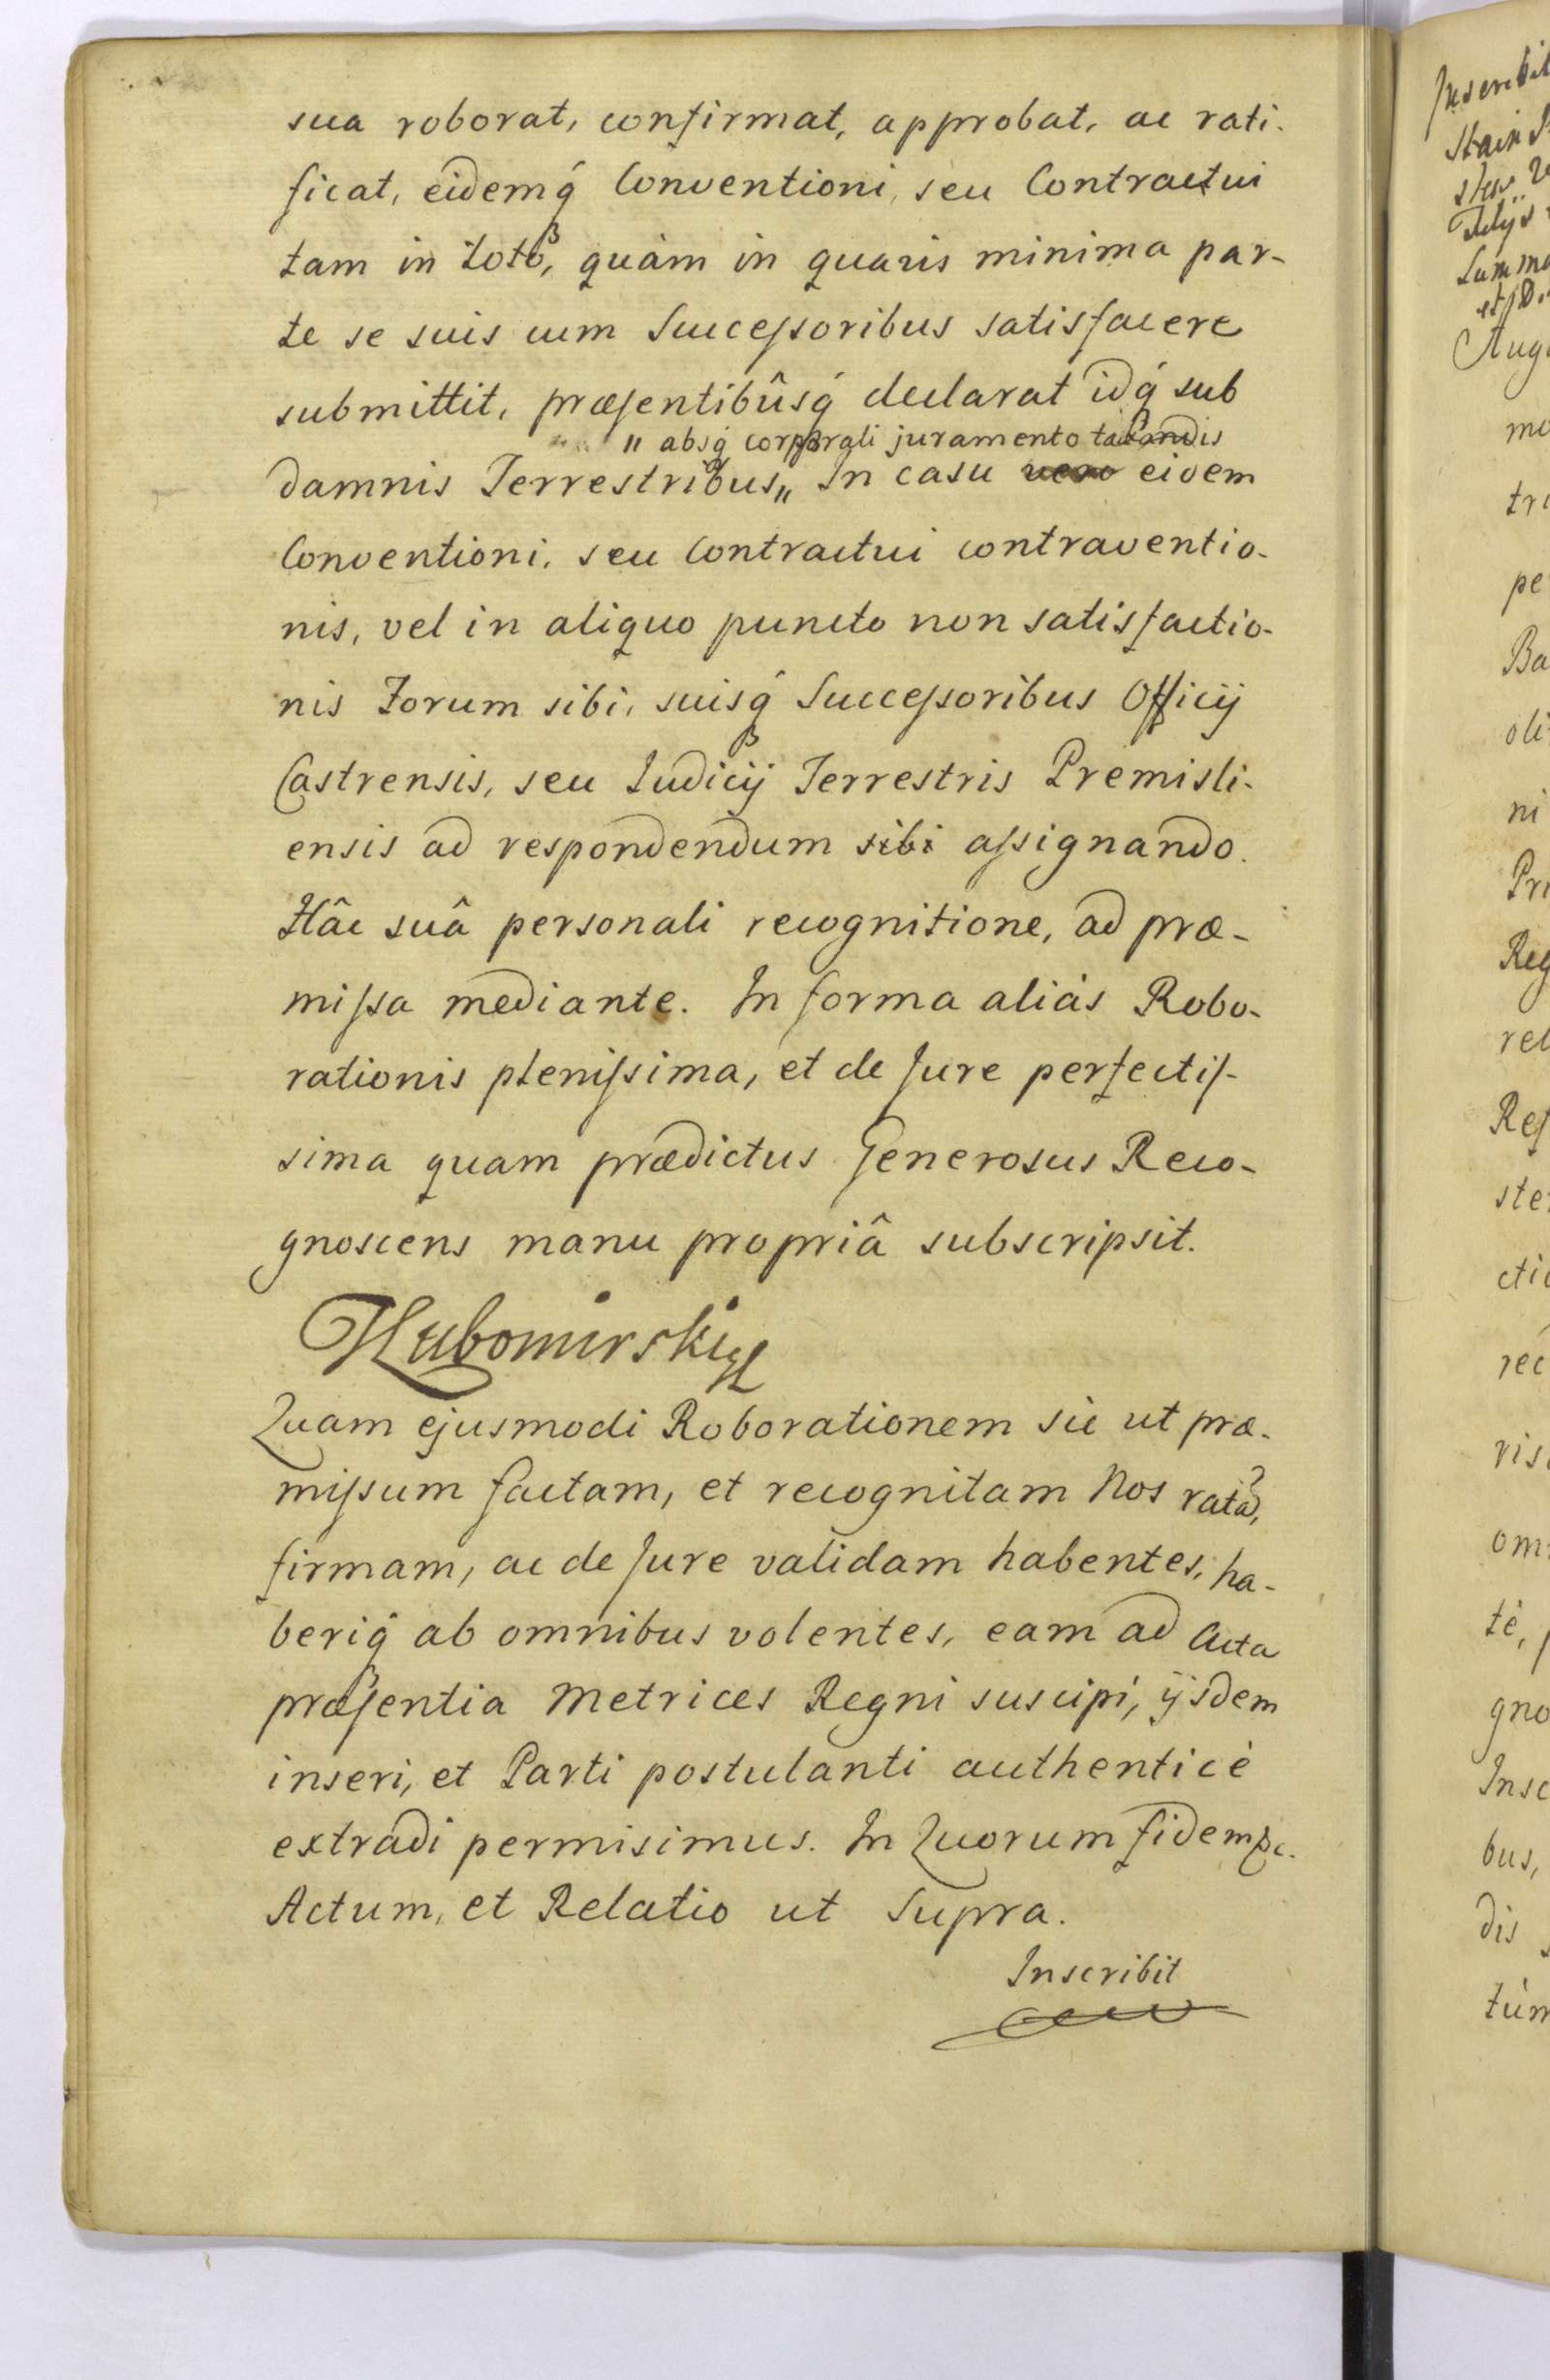 sua roborat, confirmat, approbat, ac rati-
ficat, eidemq́ Conventioni, seu Contractui
tam in toto, quàm in quavis minima par-
te se suis cum Successoribus satisfacere
submittit, præsentibûsq́ declarat idq́ sub
„ absq́ corporali juramento taxandis
damnis Terrestribus„ In casu vero eidem
Conventioni, seu Contractui contraventio-
nis, vel in aliquo puncto non satisfactio-
nis Forum sibi, suisq́ Successoribus Officij
Castrensis, seu Iudicij Terrestris Premisli-
ensis ad respondendum sibi assignando.
Hâc suâ personali recognitione, ad præ-
missa mediante. In forma aliàs Robo-
rationis plenissima, et de Jure perfectis-
sima quam prædictus Generosus Reco-
gnoscens manu propriâ subscripsit.
Lubomirski
Quam ejusmodi Roborationem sic ut præ-
missum factam, et recognitam Nos ratã,
firmam, ac de Jure validam habentes, ha-
beriq́ ab omnibus volentes, eam ad Acta
præsentia Metrices Regni suscipi, ijsdem
inseri, et Parti postulanti authenticè
extradi permisimus. In Quorum fidem &c.
Actum, et Relatio ut Supra.
Inscribit
Inscribit
Summa
Aug
mo
tri
pe
Ba
oli
ni
Pri
Reg
rel
Res
ste
cti
rec
ris
om
tè,
gno
Insc
bus,
dis
tùm